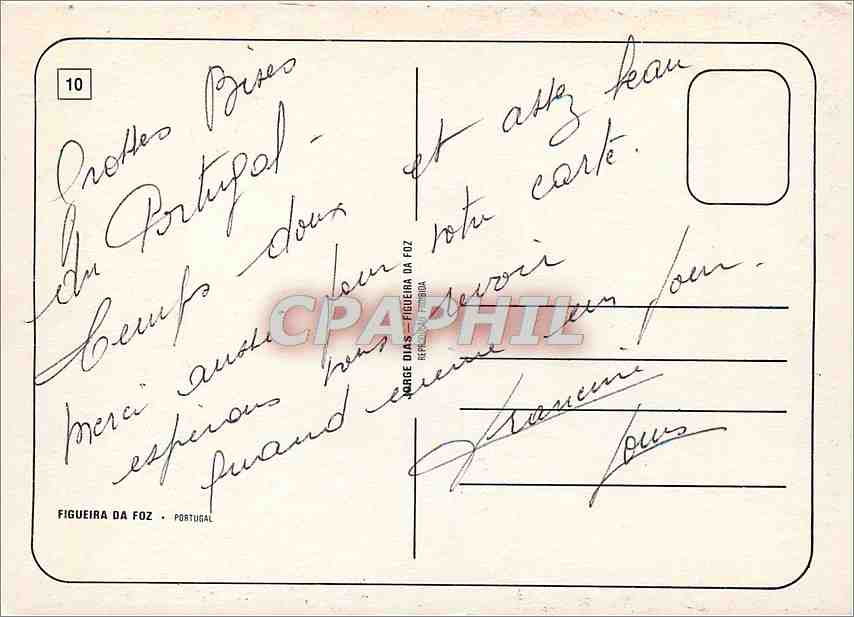 10
Grosses Bises
du Portugal -
Temps doux et assez beau
Merci aussi pour votre carte.
espérons vous revoir
quand même un jour.
Francine
Louis
JORGE DIAS — FIGUEIRA DA FOZ
REPRODUÇÃO PROIBIDA
CPAPHIL
FIGUEIRA DA FOZ • PORTUGAL